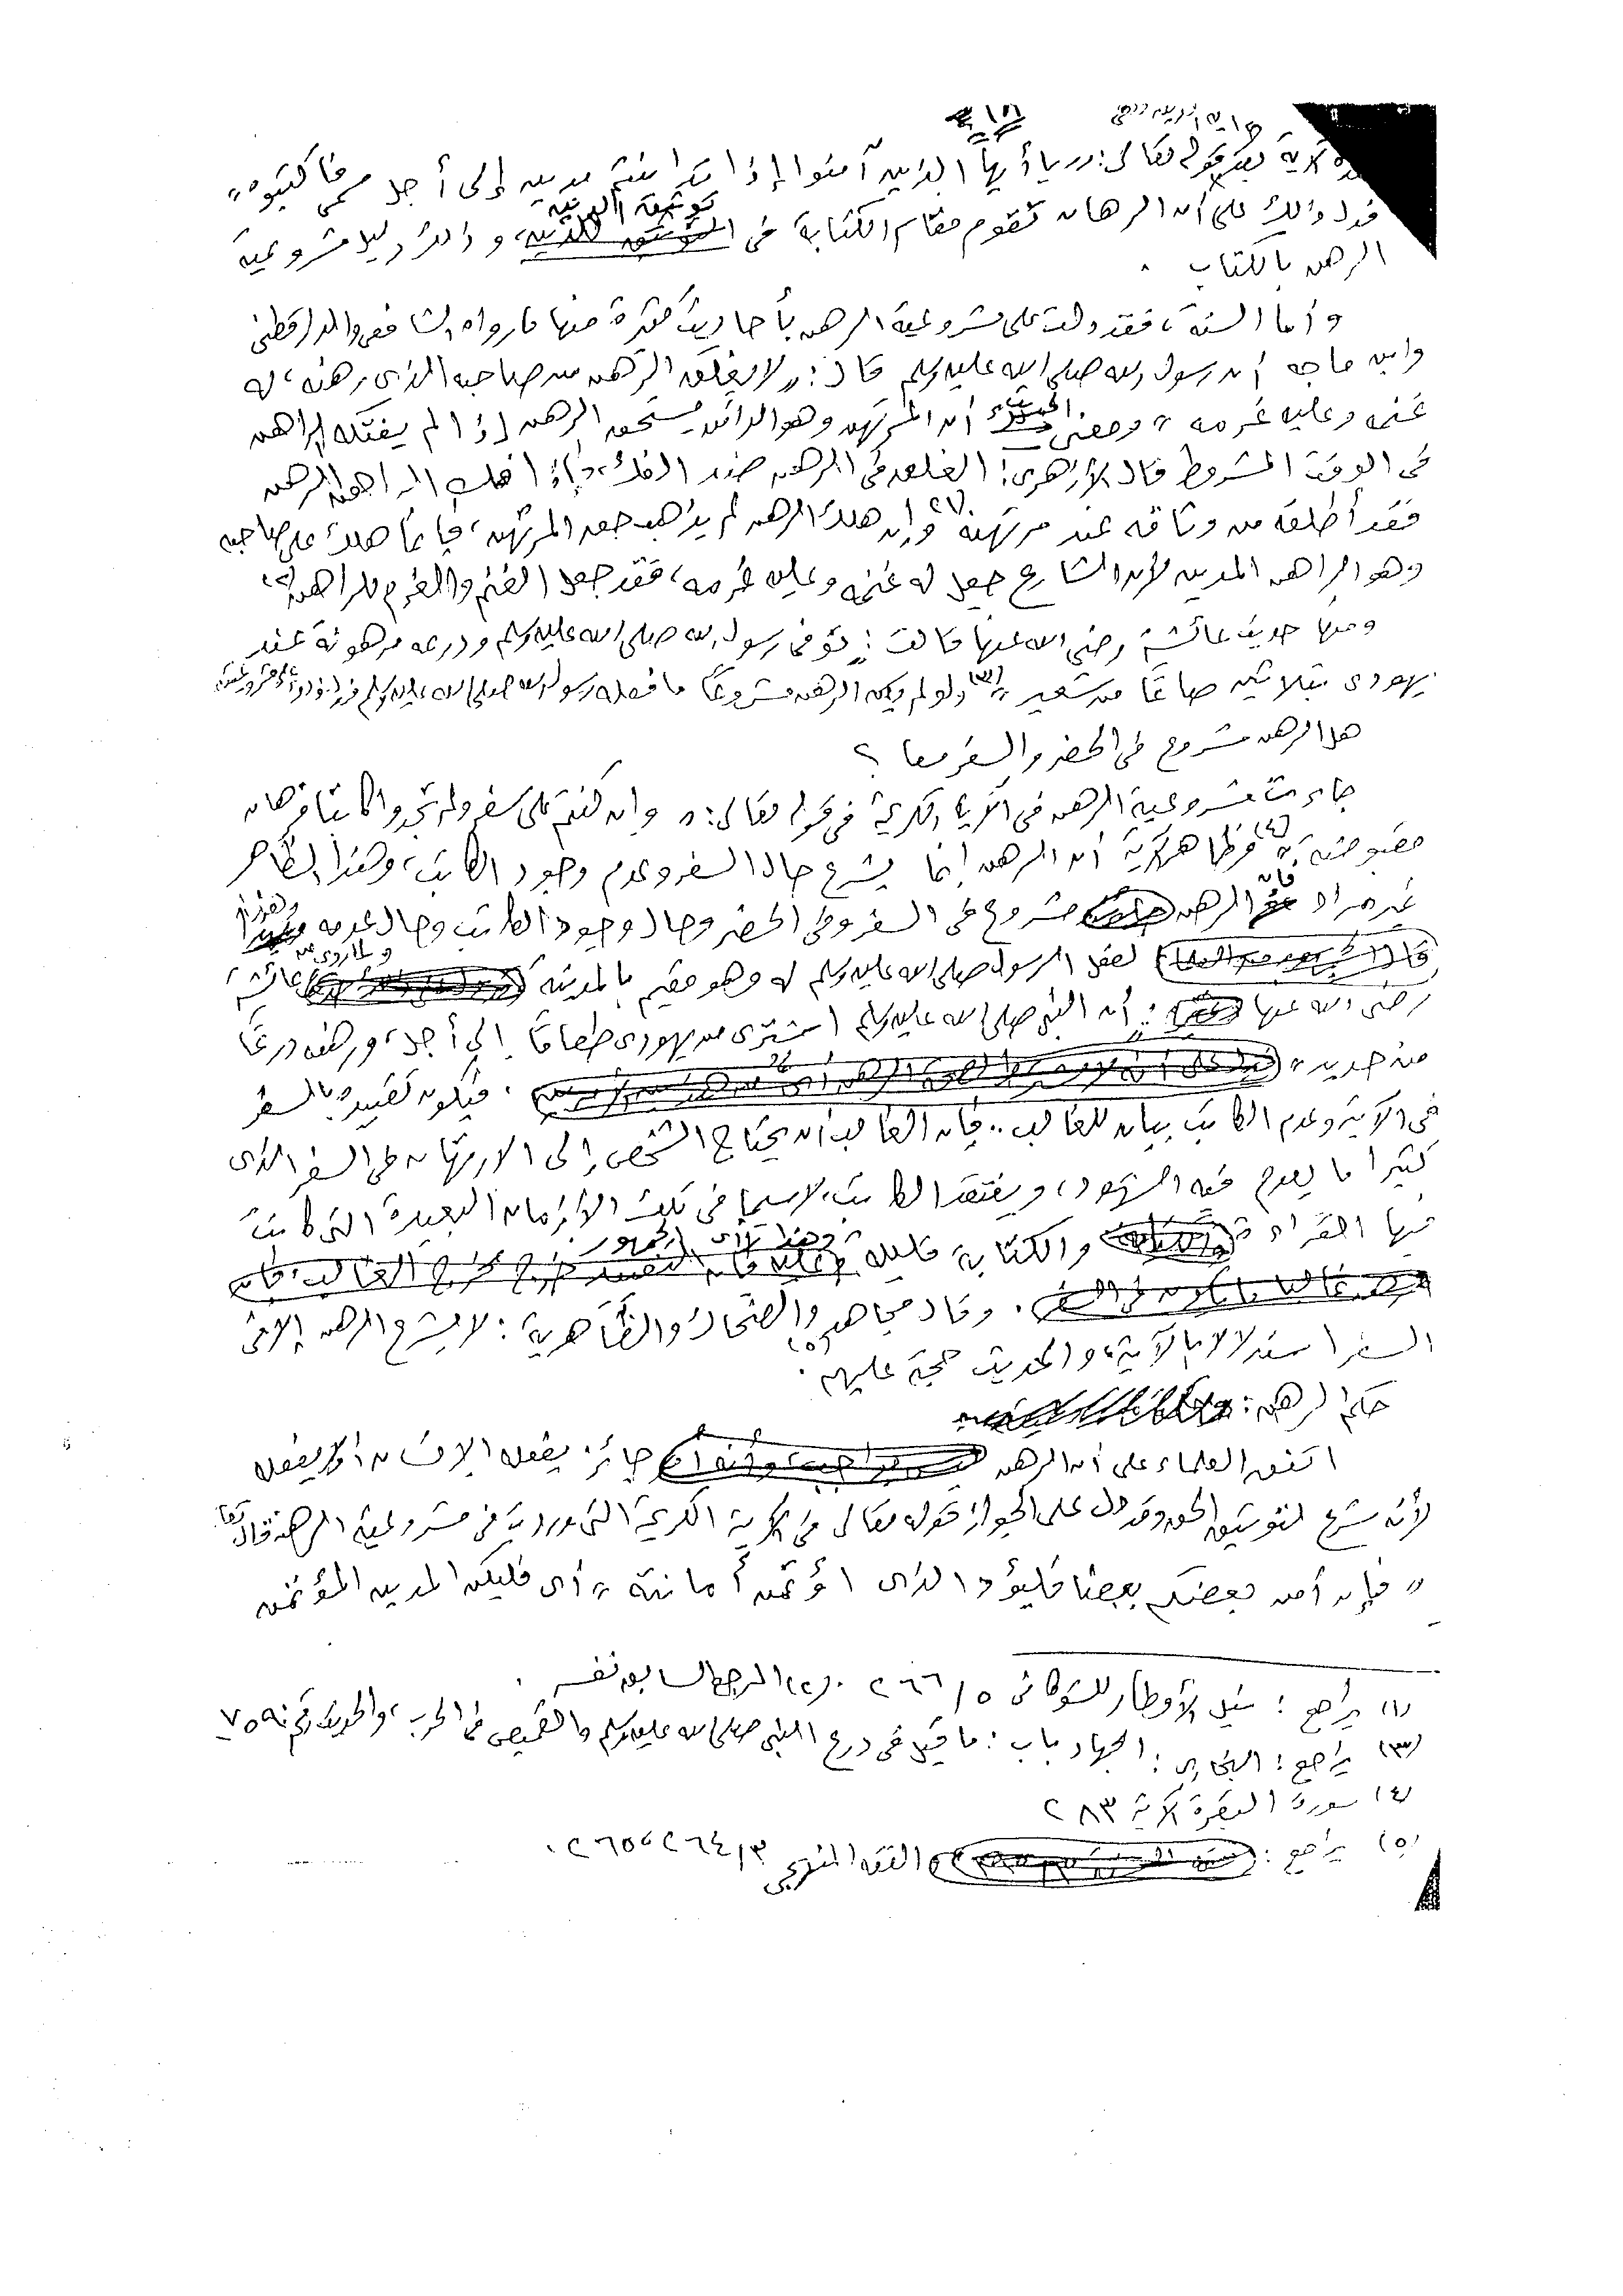 الآية بعد قوله تعالى: "يا أيها الذين آمنوا إذا تداينتم بدين إلى أجل مسمى فاكتبوه"
فدل ذلك على أن الرهان تقوم مقام الكتابة فى توثيق الدين، وذلك دليل مشروعية
الرهن بالكتاب .
وأما السنة، فقد دلت على مشروعية الرهن بأحاديث كثيرة منها ما رواه الشافعى والدارقطنى
وابن ماجه أن رسول الله صلى الله عليه وسلم قال: "لا يغلق الرهن من صاحبه الذى رهنه، له
غنمه وعليه غرمه" ومعنى الحديث أن المرتهن وهو الدائن يستحق الرهن إذا لم يفتكه الراهن
فى الوقت المشروط قال الأزهرى: الغلق فى الرهن ضد الفك، فإذا فك الراهن الرهن
فقد أطلقه من وثاقه عند مرتهنه وإن هلك الرهن لم يذهب حق المرتهن، فإنما هلك على صاحبه
وهو الراهن المدين لأن الشارع جعل له غنمه وعليه غرمه، فقد جعل الغنم والغرم للراهن
ومنها حديث عائشة رضى الله عنها قالت: توفى رسول الله صلى الله عليه وسلم ودرعه مرهونة عند
يهودى بثلاثين صاعًا من شعير "(٣) ولو لم يكن الرهن مشروعًا ما فعله رسول الله صلى الله عليه وسلم
هل الرهن مشروع فى الحضر والسفر معا ؟
جاءت مشروعية الرهن فى الآية الكريمة فى قوله تعالى: "وإن كنتم على سفر ولم تجدوا كاتبا فرهان
مقبوضة"(٤) فظاهر الآية أن الرهن إنما يشرع حال السفر وعدم وجود الكاتب، وهذا الظاهر
غير مراد فإن الرهن مشروع فى السفر وفى الحضر وحال وجود الكاتب وحال عدمه وهذا
لفعل الرسول صلى الله عليه وسلم له وهو مقيم بالمدينة ولما روى عن عائشة،
رضى الله عنها: أن النبى صلى الله عليه وسلم اشترى من يهودى طعامًا إلى أجل، ورهنه درعًا
من حديد" . فيكون تقييده بالسفر
فى الآية وعدم الكاتب بيان للغالب.. فإن الغالب أن يحتاج الشخص إلى الارتهان فى السفر الذى
كثيرا ما يعدم فيه الشهود، ويفتقد الكاتب، لاسيما فى تلك الأزمان البعيدة التى كانت
فيها القراءة والكتابة قليلة، وهذا رأى الجمهور
. وقال مجاهد والضحاك والظاهرية: لا يشرع الرهن إلا فى
السفر استدلالا بالآية، والحديث حجة عليهم(٥).
حكم الرهن:
اتفق العلماء على أن الرهن جائز يفعله الإنسان أو لا يفعله
لأنه شرع لتوثيق الحق وقد دل على الجواز قوله تعالى فى الآية الكريمة التى وردت فى مشروعية الرهن قال تعالى
"فإن أمن بعضكم بعضا فليؤد الذى اؤتمن أمانته" أى فليكن المدين المؤتمن
(١) يراجع: نيل الأوطار للشوكانى ٥/ ٢٦٦ . (٢) المرجع السابق نفسه .
(٣) يراجع: البخارى: الجهاد باب: ما قيل فى درع النبى صلى الله عليه وسلم والقميص فى الحرب، والحديث رقم ٢٧٥٩
(٤) سورة البقرة الآية ٢٨٣
(٥) يراجع: الفقه المنهجى ٣/ ٢٦٤، ٢٦٥ .